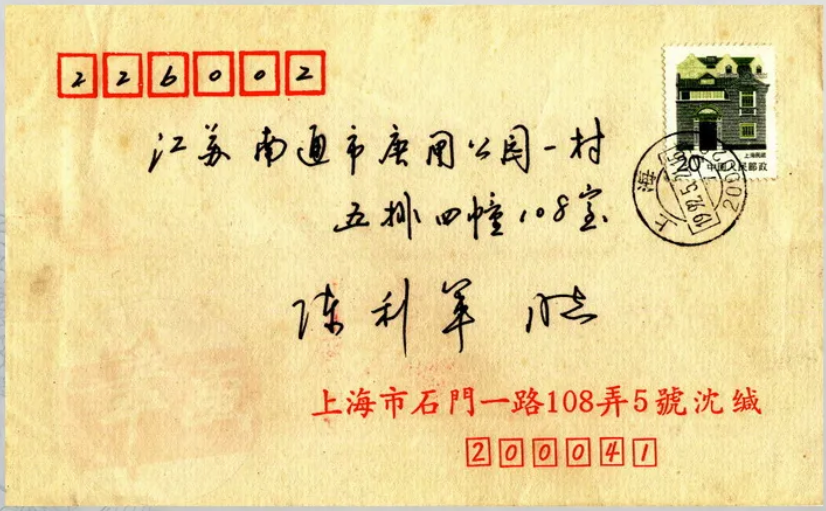 226002
江苏南通市唐闸公园一村
五排四幢108室
陈利军
上海民居
20 中国人民邮政
上海
200
1992.5.
上海市石門一路108弄5號沈缄
200041